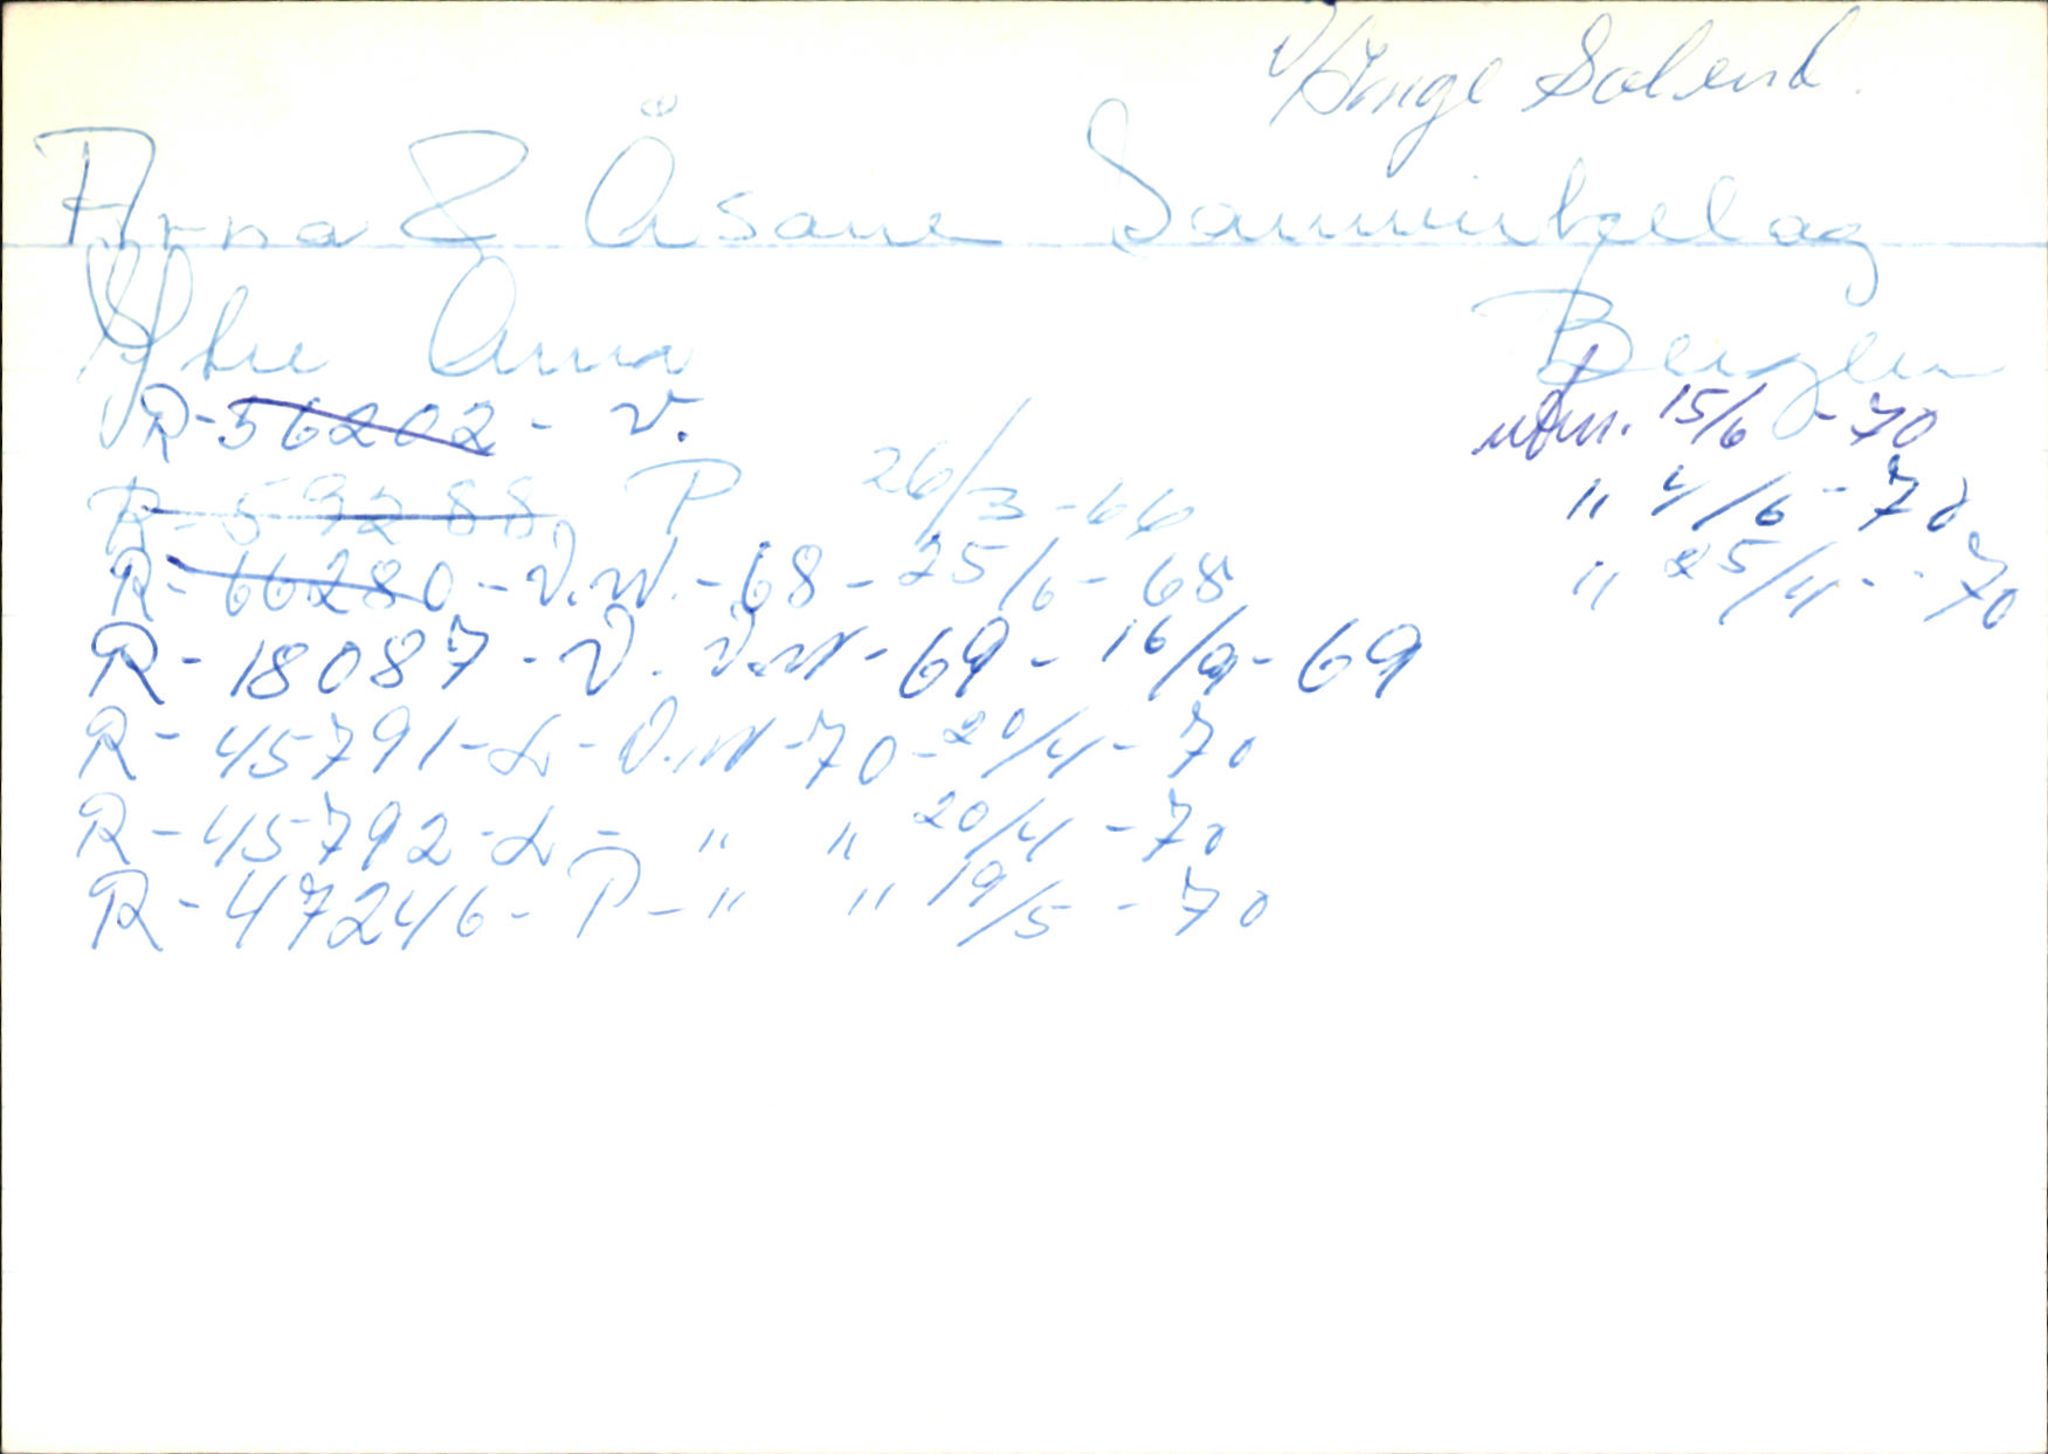 v/Inge Solend.
Arna & Åsane Saminkjelag
Ytre Arna Bergen
R-56202- V. utm. 15/6-70
R-59288 P 26/3-66 " 4/6-70
R-66280-V.W.-68-25/6-68 " 25/4-70
R-18087-V. V.W-69-16/9-69
R-45791-L-V.W-70-20/4-70
R-45792-L- " " 20/4-70
R-47246-P-" " 19/5-70